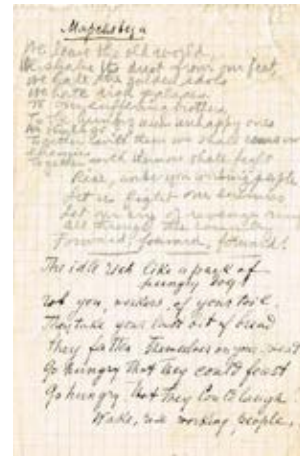 Марсельеза
We leave the old world
We shake its dust from our feet,
We hate the golden idols
We hate
To our suffering brothers,
To the hungry and unhappy ones
Together with them we shall
Together with them we shall fight
Rise, wake you working people
Let us fight our enemies
Let our cry of revenge
all through the
Forward, forward, forward!
The idle rich like a pack of
hungry dogs
rob you, workers, of your toil
They take your last bit of bread
they fatten themselves on your
Go hungry that they could feast
Go hungry that they could laugh
Wake, working people,